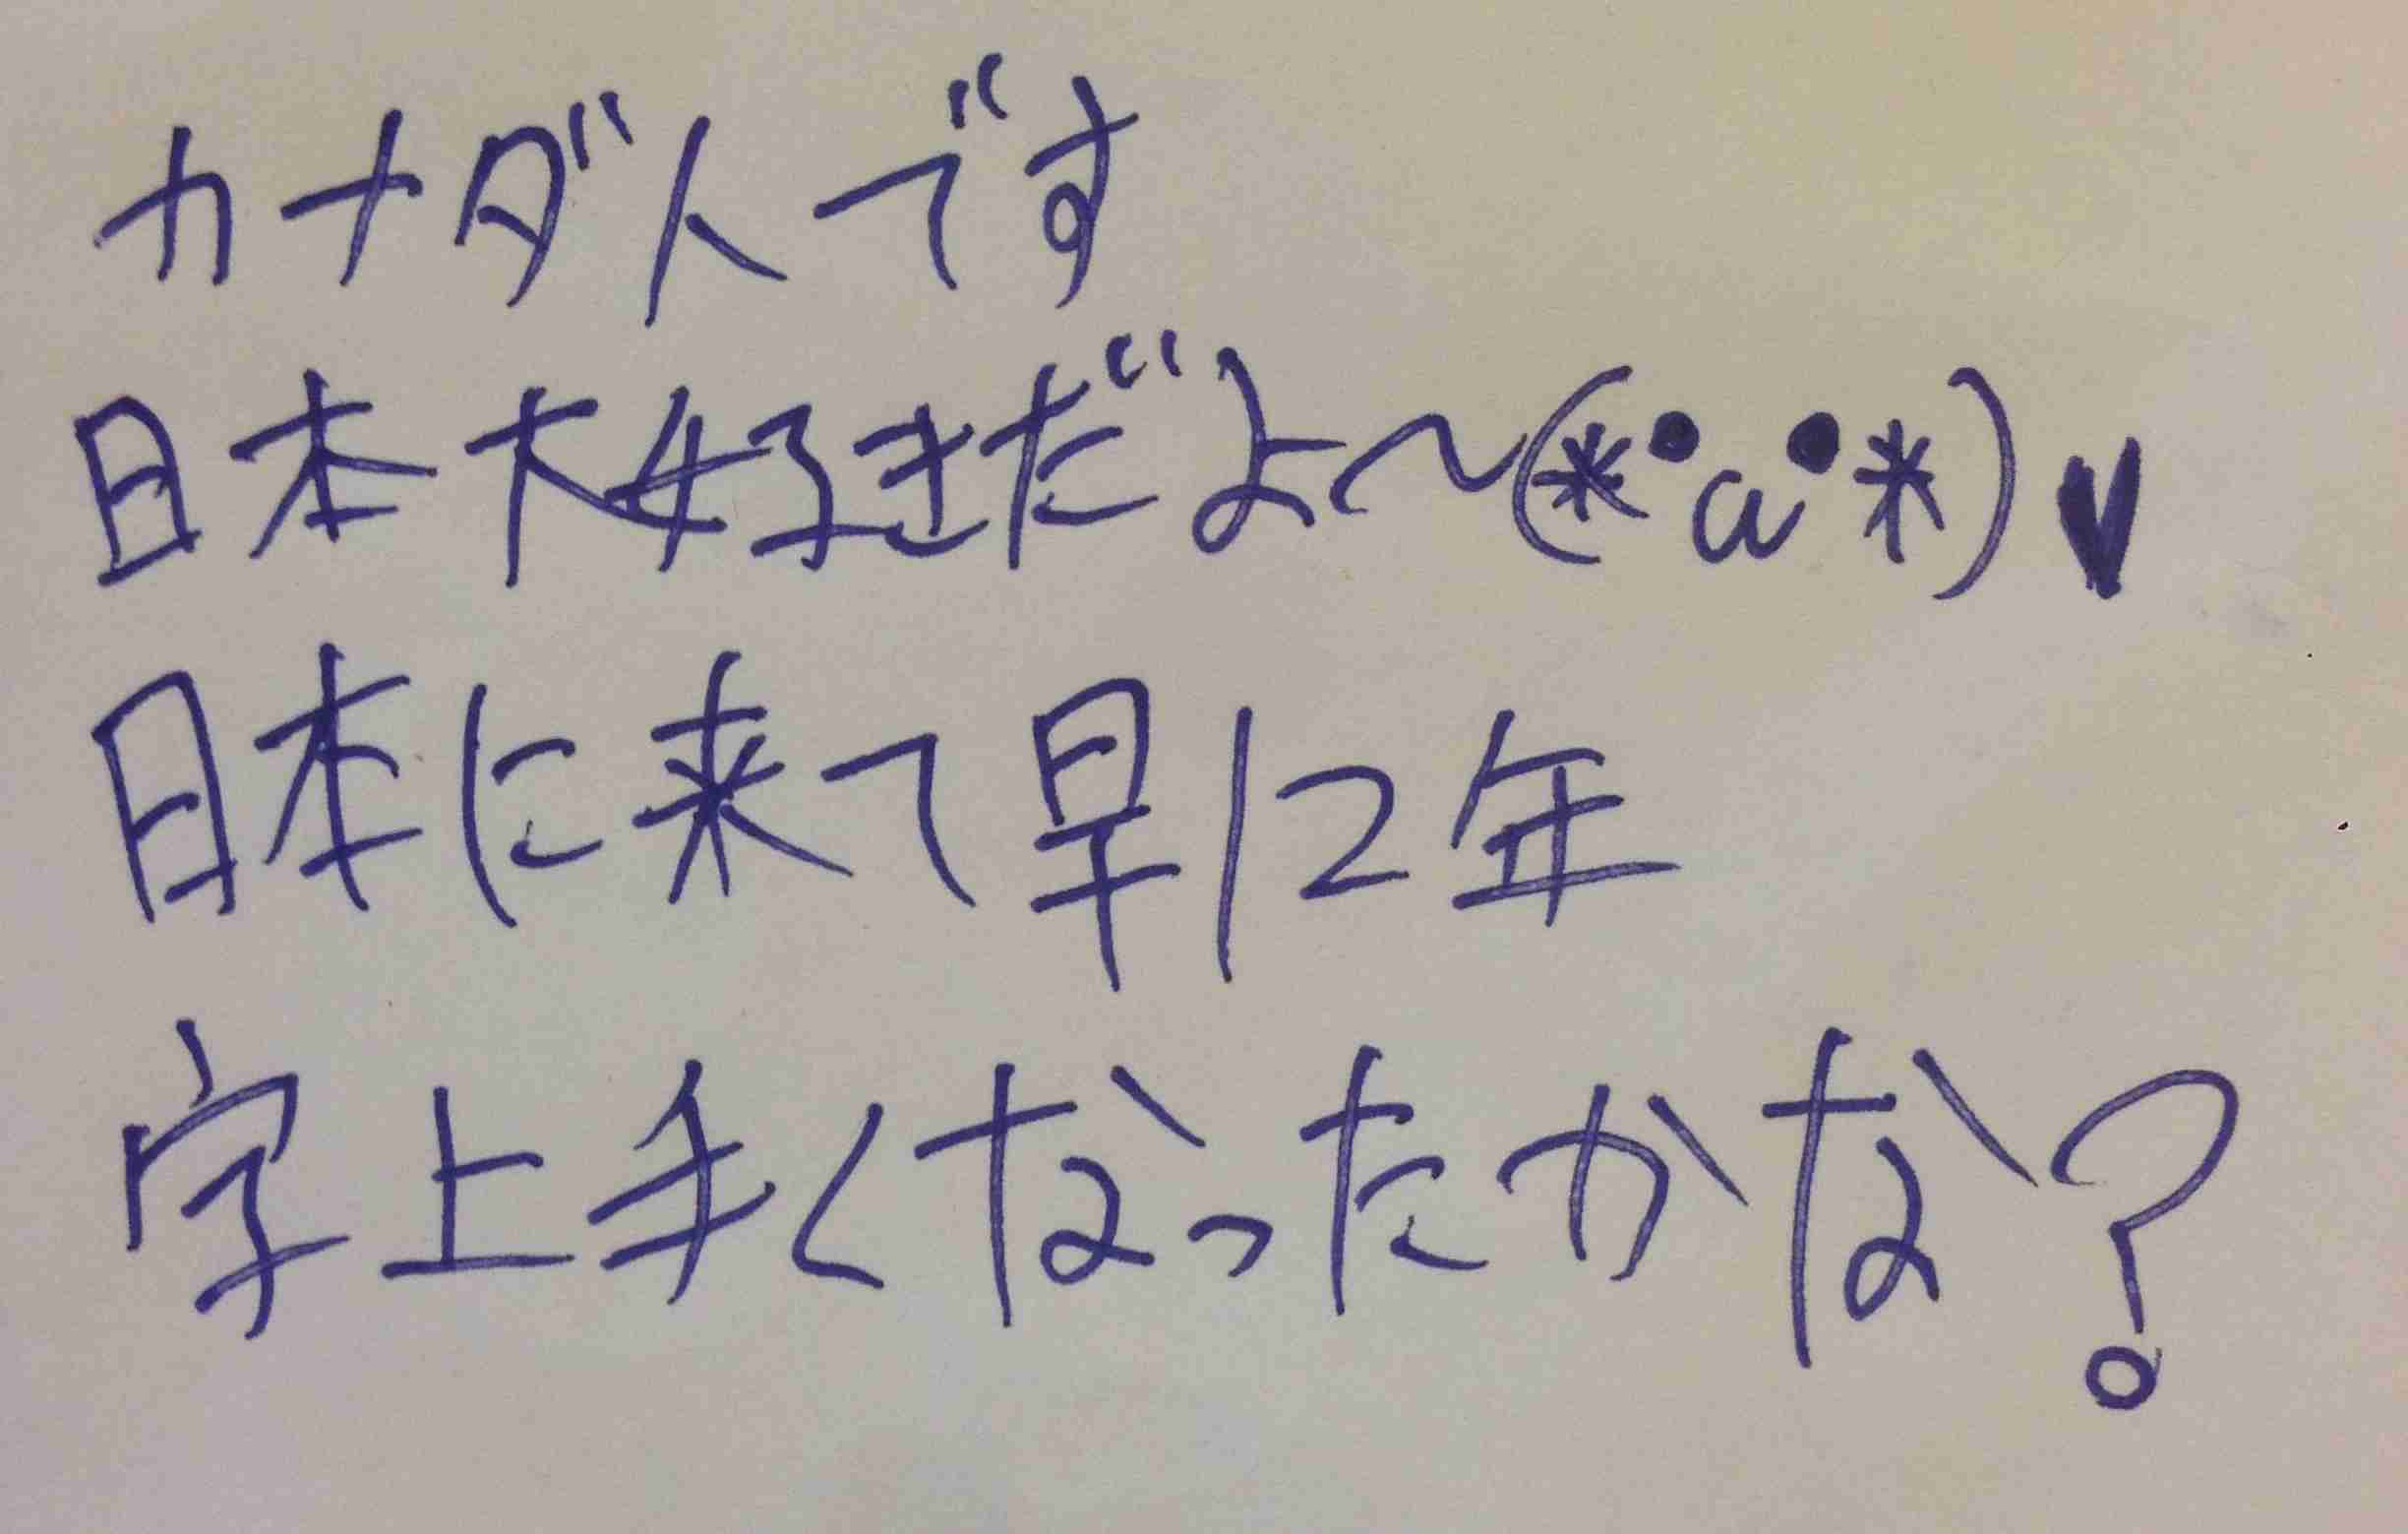 カナダ人です
日本大好きだよ～(*•ω•*)♥
日本に来て早12年
字上手くなったかな?